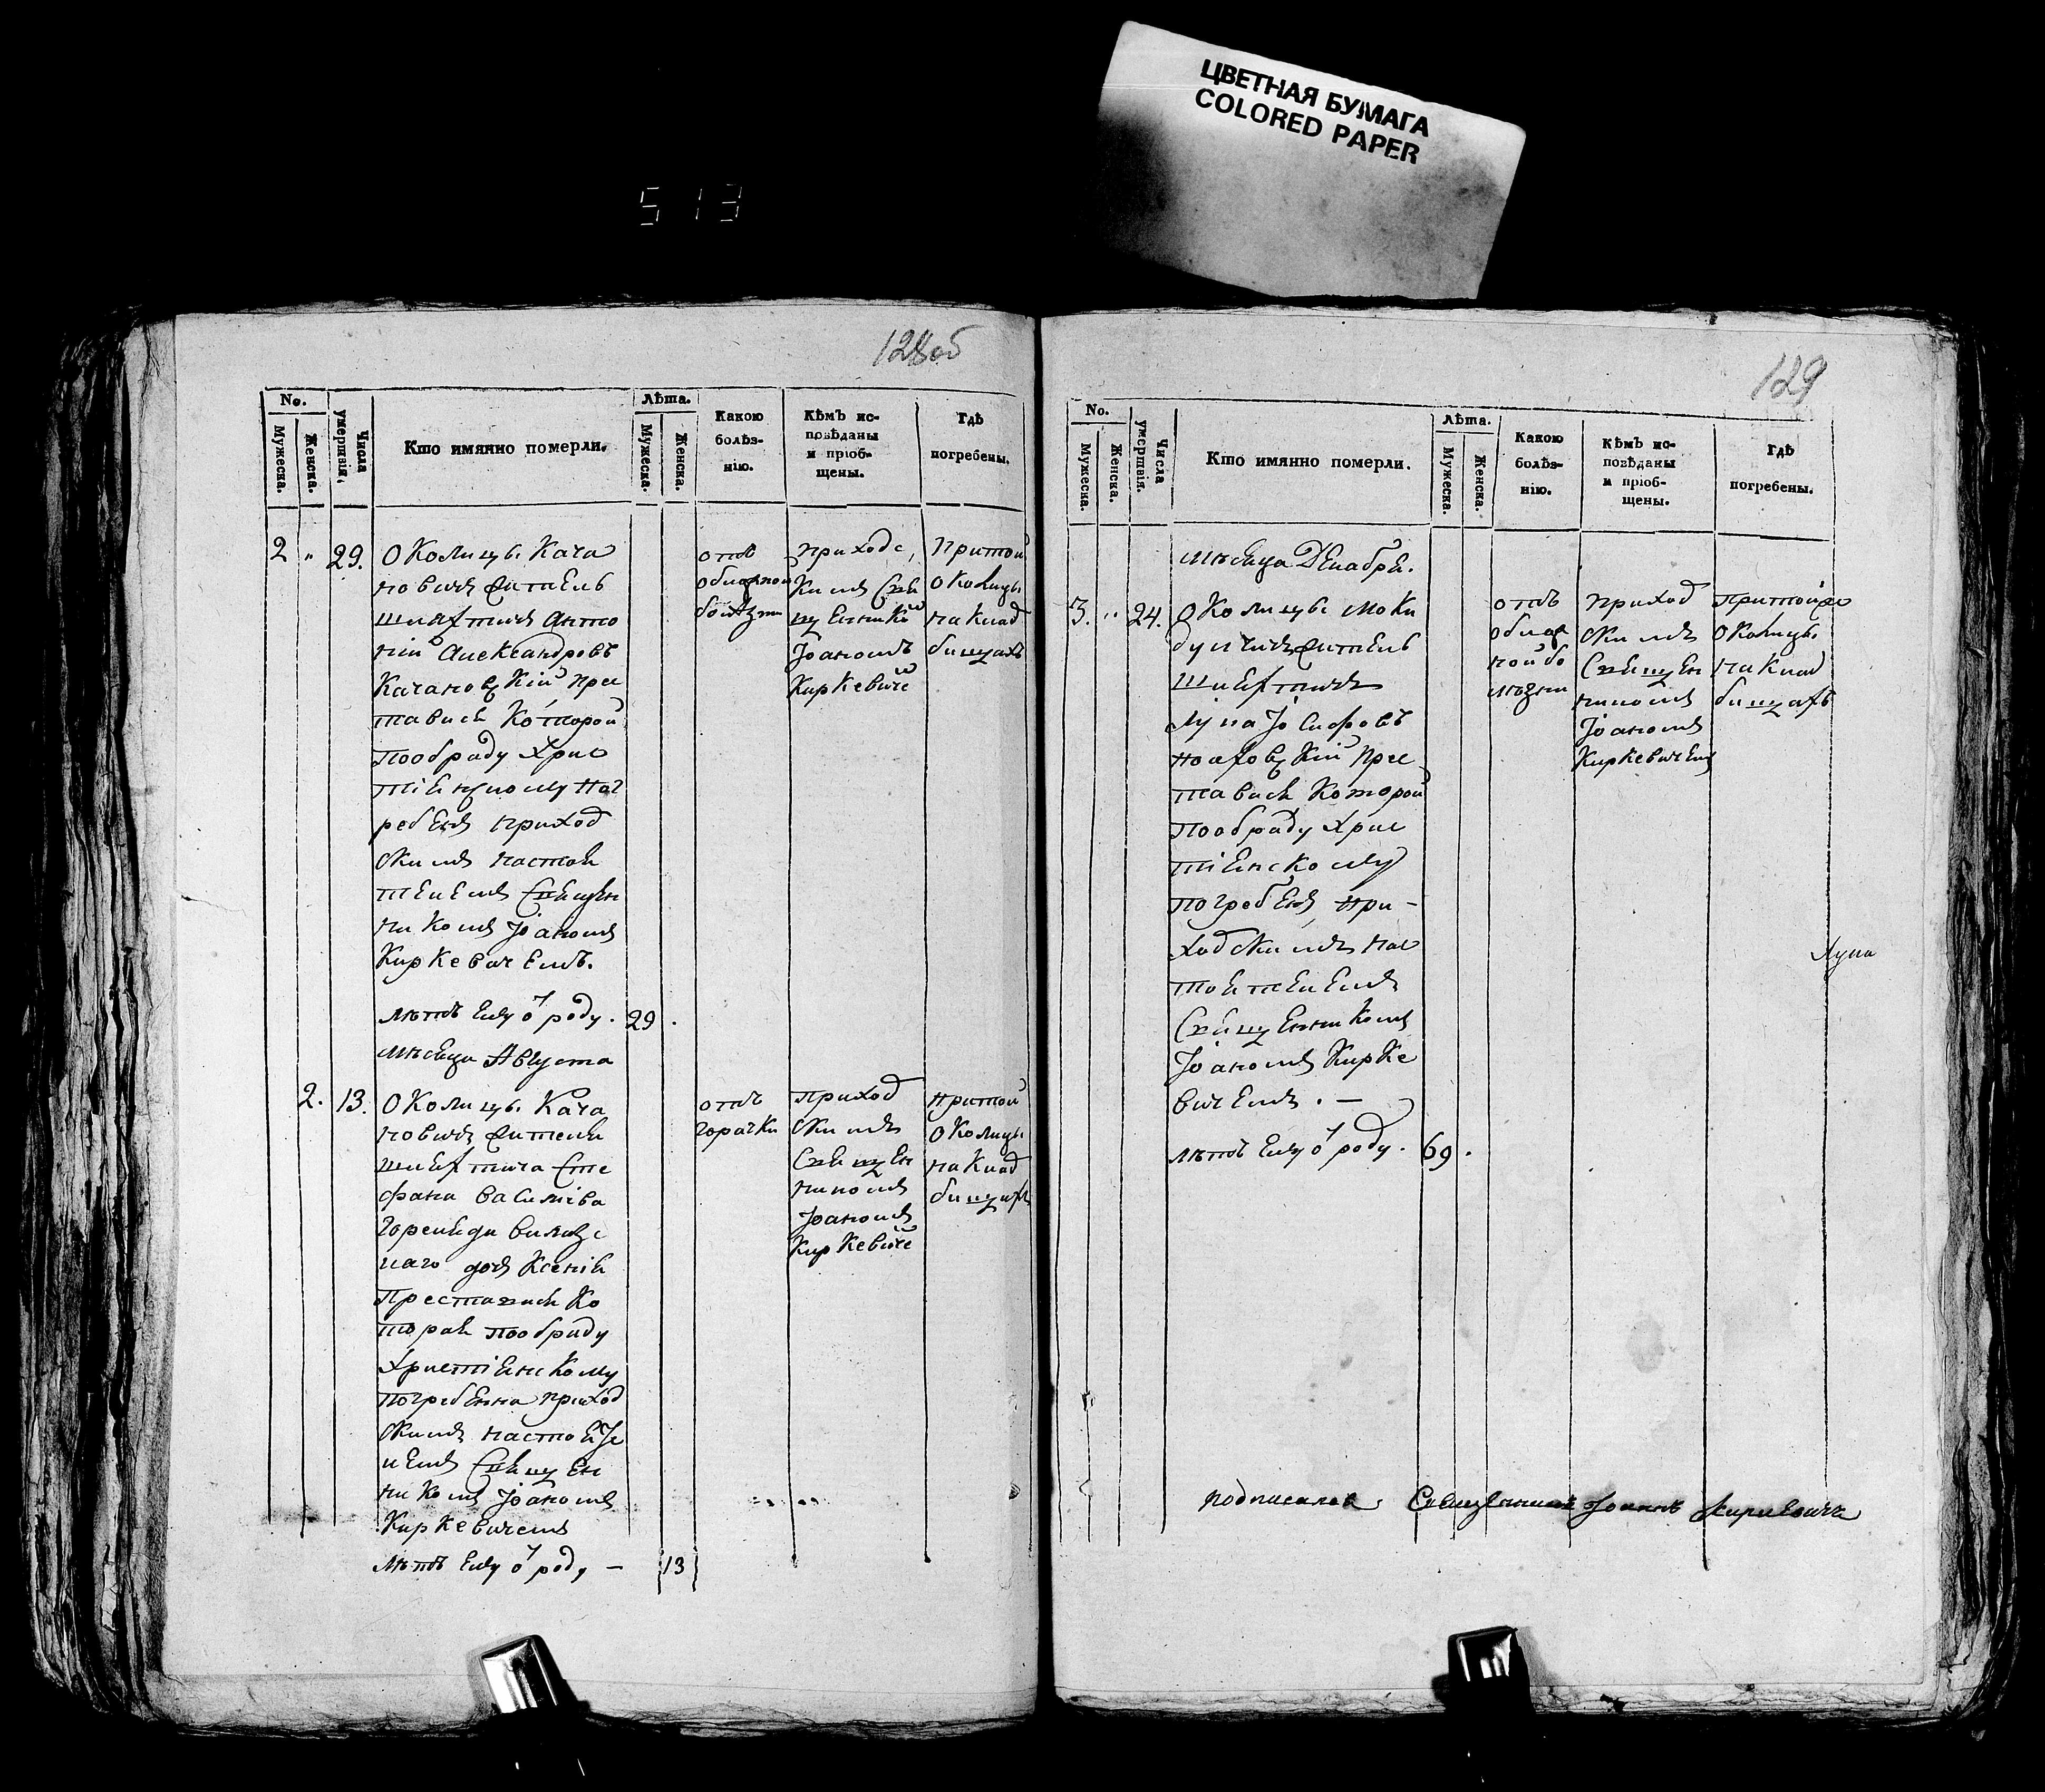 ЦВЕТНАЯ БУМАГА
COLORED PAPER
513
128об
No.
Мужеска.
Женска.
Числа умертвія.
Кто имянно померли.
Лѣта.
Мужеска.
Женска.
Какою болѣз-
нію.
Кѣмъ ис-
повѣданы
и пріоб-
щены.
Гдѣ
погребены.
2 " 29. Околицы Кача
новичъ житель
шляхтичъ Анто
ній Александровъ
Качановскій прес
тавися которой
по обряду Хрис
тіянскому пог
ребенъ приход
скимъ настоя
телемъ Священ
никомъ Іоаномъ
Киркевичемъ.
лѣтъ ему о͡т роду . 29 .
отъ
приходс
кимъ Свя
щенико
Іоаномъ
Киркевиче
При той
околицы
на клад
бищахъ
мѣсяца Августа
2. 13. Околицы Кача
новичъ жителя
шляхтича Сте
фана Василіва
дочь Ксенія
Преставися ко
торая по обряду
Християнскому
погребенна приход
скимъ настояте
лемъ Священ
никомъ Іоаномъ
Киркевичемъ
лѣтъ ему о͡т роду — 13
отъ
горачки
приход
скимъ
Священ
никомъ
Іоаномъ
Киркевиче
при той
околицы
на клад
бищахъ
129
No.
Мужеска.
Женска.
Числа умертвія.
Кто имянно померли.
Лѣта.
Мужеска.
Женска.
Какою
болѣз-
нію.
Кѣмъ ис-
повѣданы
и пріоб-
щены.
Гдѣ
погребены.
мѣсяца Декабря.
3. " 24. Околицы
житель
шляхтичъ
Лука Іосифовъ
прес
тавися которой
по обряду Хрис
тіянскому
погребенъ при-
ходскимъ нас
тоятелемъ
Священникомъ
Іоаномъ Кирке
вичемъ . —
лѣтъ ему о͡т роду . 69 .
отъ
приход
скимъ
Священ
никомъ
Іоаномъ
Киркевичемъ
при той же
околицы
на клад
бищахъ
Лука
подписался Священникъ Іоаннъ Киркевичъ